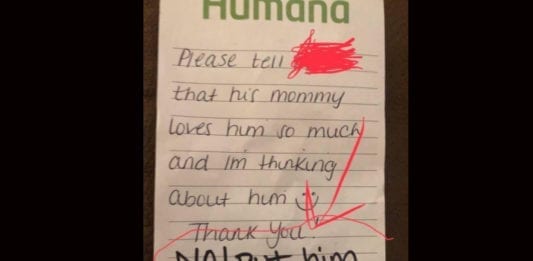 Humana
Please tell
that his mommy
loves him so much
and im thinking
about him
Thank you.
NO! Put him